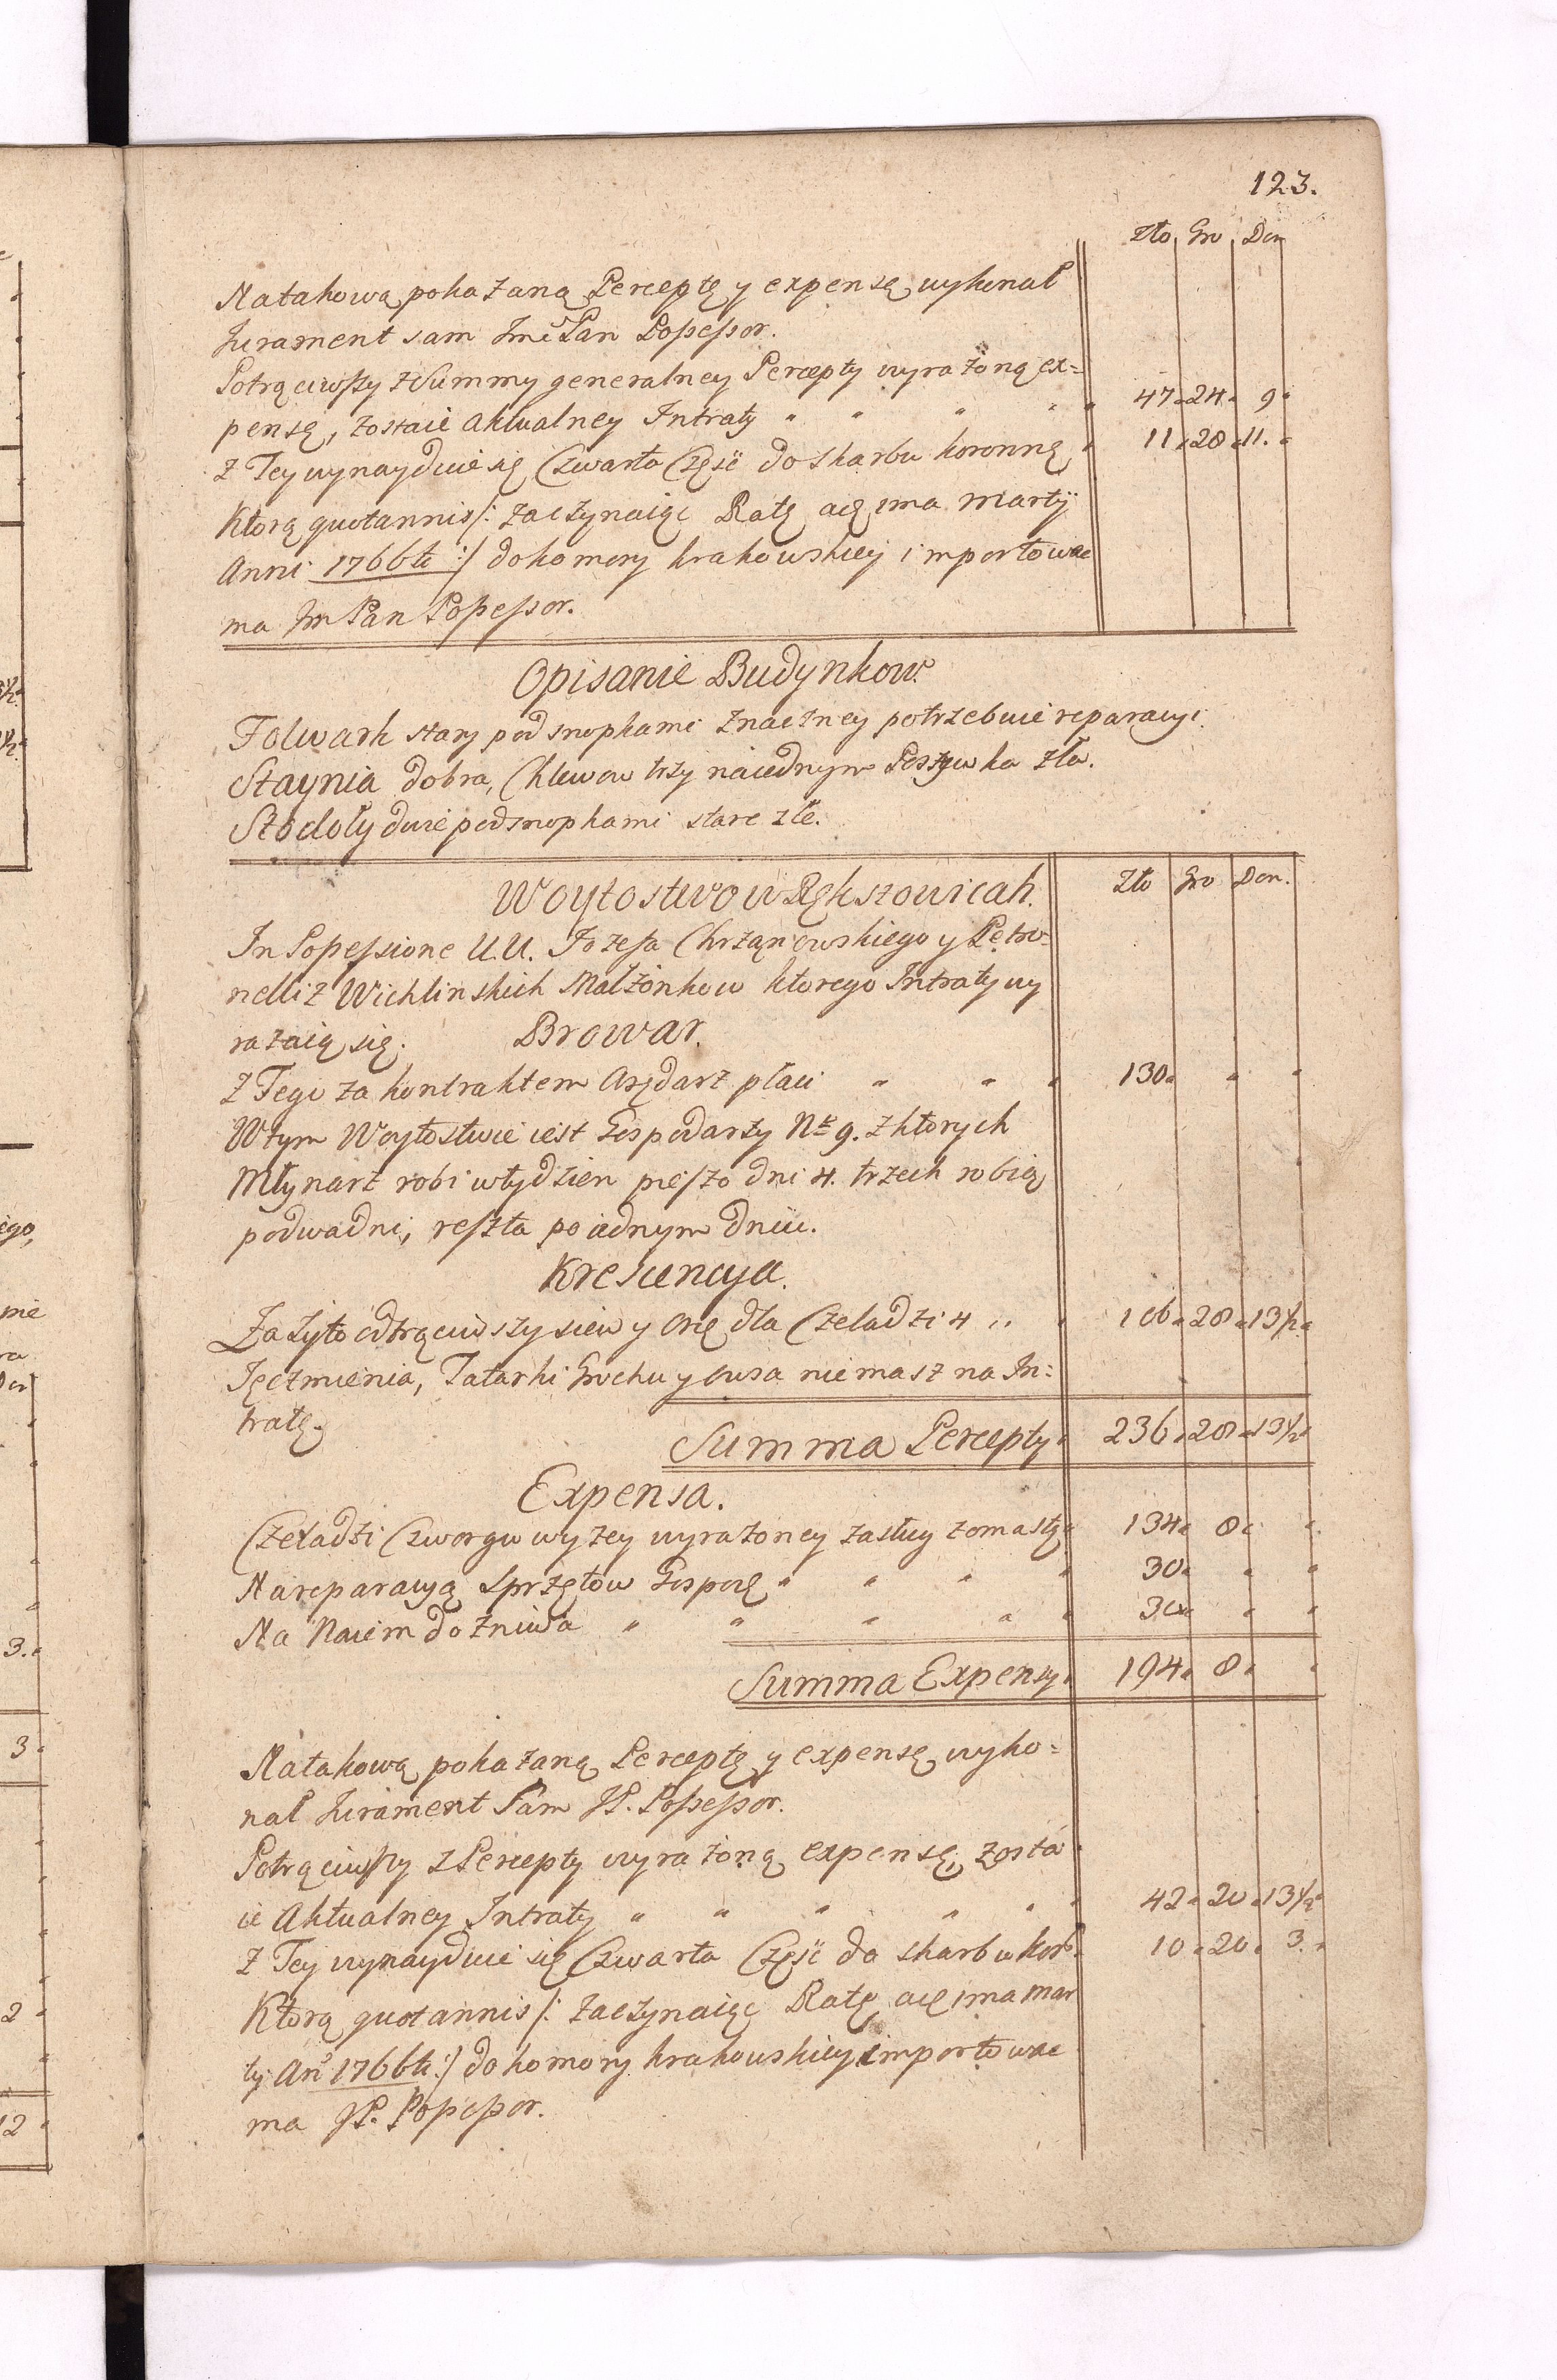 123.
Zło Gro Den
Na takową pokazaną Perceptę y expensę wykonał
Jurament sam Jmć Pan Possessor.
Potrąciwszy z Summy generalney Percepty wyrażoną ex=
pensę, zostaie aktualney Intraty " " " " " 47 " 24 " 9 "
Z Tey wynayduie się Czwarta Częsć do skarbu koronnę " 11 " 28 " 11. "
Ktorą quotannis /: zaczynaiąc Ratę a 1ma Martij
Anni 1766ti :/ do komory krakowskiey importować
ma Jm Pan Possessor.
Opisanie Budynkow.
Folwark stary pod snopkami znaczney potrzebuie reparacyi.
Staynia dobra, Chlewow trzy na iednym Poszywka zła.
Stodoły dwie pod snopkami stare złe.
Woytostwo w Rększowicah. Zło Gro Den.
In Possessione U.U. Jozefa Chrząnowskiego y Petro=
nelli z Wichlinskich Małżonkow ktorego Intraty wy
rażaią się. Browar.
Z Tego za kontraktem Arędarz płaci " " " 130 " " "
W tym Woytostwie iest Gospodarzy Nro 9. z ktorych
Młynarz robi w tydzien pieszo dni 4. trzech robią
po dwa dni, reszta po iednym dniu.
Krescencya.
Za żyto odtrąciwszy siew y Orę dla Czeladzi 4 " " 106 " 28 " 13 1/2 "
Jęczmienia, Tatarki Grochu y owsa niemasz na In=
tratę.
Summa Percepty " 236 " 28 " 13 1/2 "
Expensa.
Czeladzi Czworgu wyzey wyrażoney zasług zomastą " 134 " 8 " "
Na reparacyą Sprzętow Gospoę " " " " 30 " " "
Na Naiem do żniwa " " " " " 30 " " "
Summa Expensy " 194 " 8 " "
Na takową pokazaną Perceptę y expensę wyko=
nał Jurament Sam JP. Possessor.
Potrąciwszy z Percepty wyrażoną expensę, zosta
ie Aktualney Intraty " " " " " " 42 " 20 " 13 1/2 "
Z Tey wynayduie się Czwarta Częsć do skarbu kor. 10 " 20 " 3. "
Ktorą quotannis /: zaczynaiąc Ratę a 1ma Mar
tij Anõ 1766ti :/ do komory krakowskiey importować
ma JP. Possessor.